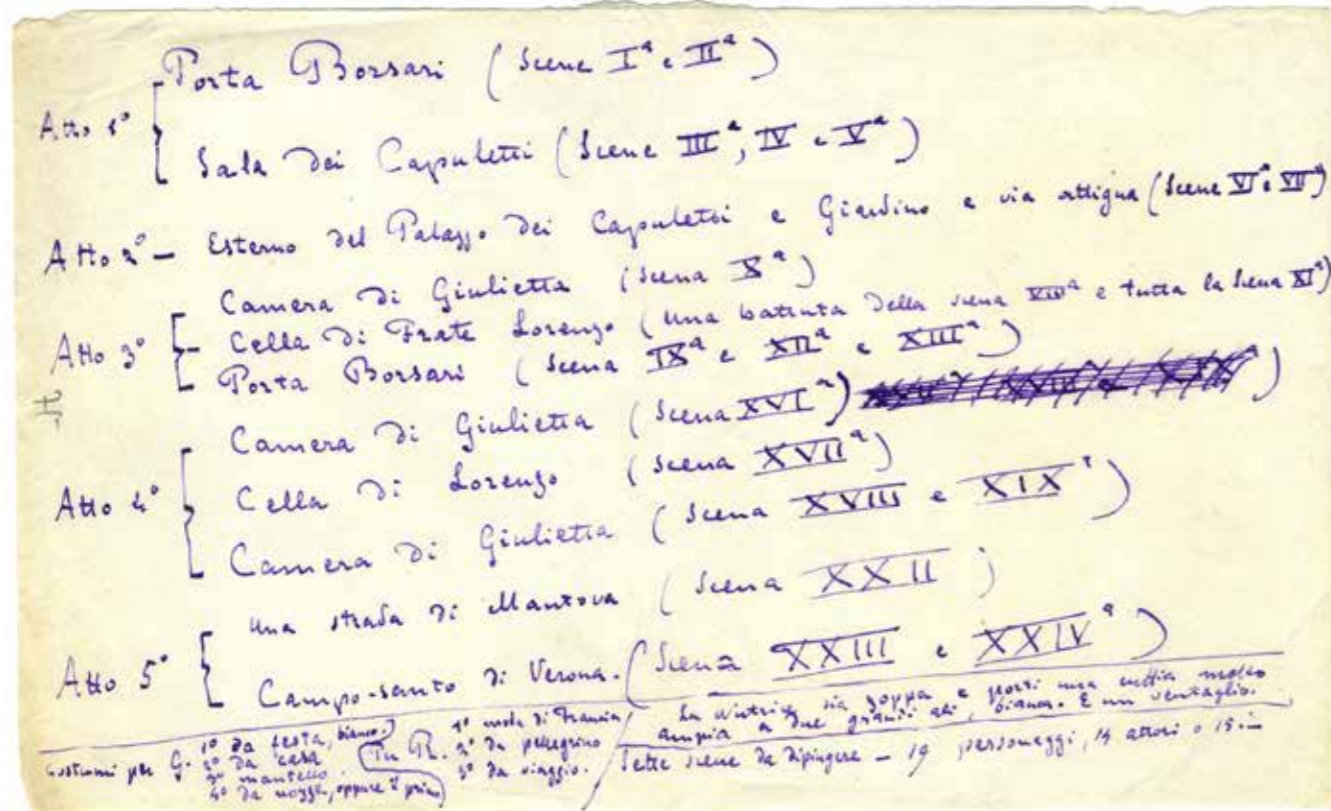 Atto 1°
Porta Borsari (Scene Iª e IIª)
Sala dei Capuletti (Scene IIIª, IV e Vª)
Atto 2° — Esterno del Palazzo dei Capuletti e Giardino e via attigua (Scene VIª e VIIª)
Atto 3°
Camera di Giulietta (Scena Xª)
Cella di Frate Lorenzo (una battuta della scena VIIIª e tutta la scena XIª)
Porta Borsari (Scena IXª e XIIª e XIIIª)
Atto 4°
Camera di Giulietta (Scena XVIª)
Cella di Lorenzo (Scena XVIIª)
Camera di Giulietta (Scena XVIII e XIXª)
Atto 5°
Una strada di Mantova (Scena XXII)
Campo-santo di Verona. (Scena XXIII e XXIVª)
Costumi per G. 1° da festa, bianco.
2° da casa
3° mantello.
4° da nozze, oppure il primo
Tu R. 1° moda di Francia
2° da pellegrino
3° da viaggio.
La nutrice sia zoppa e porti una cuffia molto
ampia a due grandi ali, bianca. E un ventaglio.
Sette scene da dipingere — 19 personaggi, 14 attori o 15.—